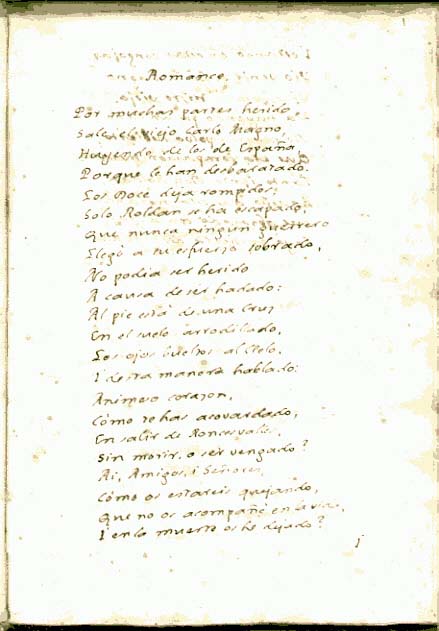 1
Romance.
Por muchas partes herido,
Sale el viejo Carlo Magno,
Huyendo de los de España,
Porque le han desbaratado.
Los Doce deja rompidos;
Solo Roldan se ha escapado,
Que nunca ningun guerrero
Llegò a su esfuerzo sobrado,
No podia ser herido
A causa de ser hadado:
Al pie está de una Cruz
En el suelo arrodillado,
Los ojos bueltos al Cielo,
I desta manera hablado:
Animoso corazon,
Cómo te has acovardado,
En salir de Roncesvalles,
Sin morir, o ser vengado?
Ai, Amigos, i Señores,
Cómo os estareis quejando,
Que no os acompañé en la vida,
I en la muerte os he dejado?